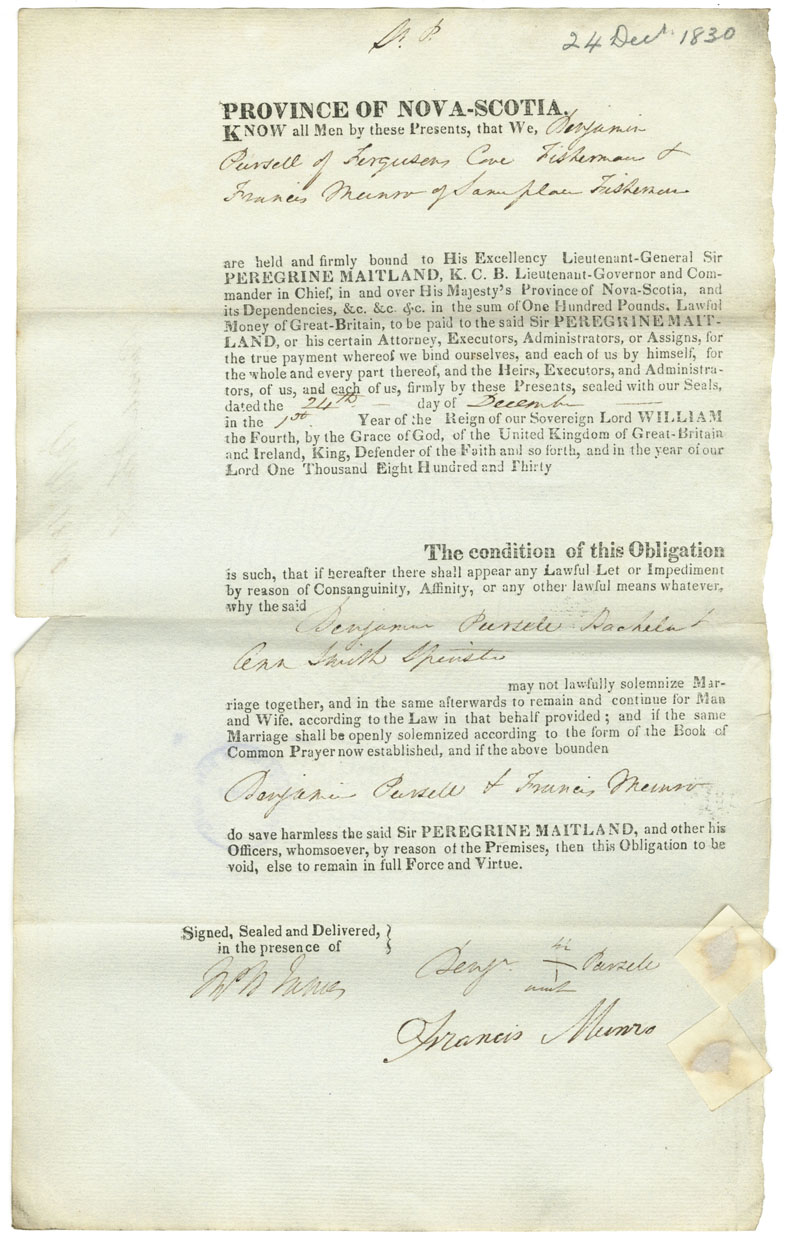 24 Decr. 1830
PROVINCE OF NOVA-SCOTIA.
KNOW all Men by these Presents, that We, Benjamin
Pursell of Fergusens Cove Fisherman &
Francis Munro of Same place Fisherman
are held and firmly bound to His Excellency Lieutenant-General Sir
PEREGRINE MAITLAND, K. C. B. Lieutenant-Governor and Com-
mander in Chief, in and over His Majesty's Province of Nova-Scotia, and
its Dependencies, &c. &c. &c. in the sum of One Hundred Pounds, Lawful
Money of Great-Britain, to be paid to the said Sir PEREGRINE MAIT-
LAND, or his certain Attorney, Executors, Administrators, or Assigns, for
the true payment whereof we bind ourselves, and each of us by himself, for
the whole and every part thereof, and the Heirs, Executors, and Administra-
tors, of us, and each of us, firmly by these Presents, sealed with our Seals,
dated the 24th day of December
in the 1st. Year of the Reign of our Sovereign Lord WILLIAM
the Fourth, by the Grace of God, of the United Kingdom of Great-Britain
and Ireland, King, Defender of the Faith and so forth, and in the year of our
Lord One Thousand Eight Hundred and Thirty
The condition of this Obligation
is such, that if hereafter there shall appear any Lawful Let or Impediment
by reason of Consanguinity, Affinity, or any other lawful means whatever,
why the said
Benjamin Pursell Bachelor &
Ann Smith Spinster
may not lawfully solemnize Mar-
riage together, and in the same afterwards to remain and continue for Man
and Wife, according to the Law in that behalf provided; and if the same
Marriage shall be openly solemnized according to the form of the Book of
Common Prayer now established, and if the above bounden
Benjamin Pursell & Francis Munro
do save harmless the said Sir PEREGRINE MAITLAND, and other his
Officers, whomsoever, by reason of the Premises, then this Obligation to be
void, else to remain in full Force and Virtue.
Signed, Sealed and Delivered,
in the presence of
Benjn. Pursell
Francis Munro